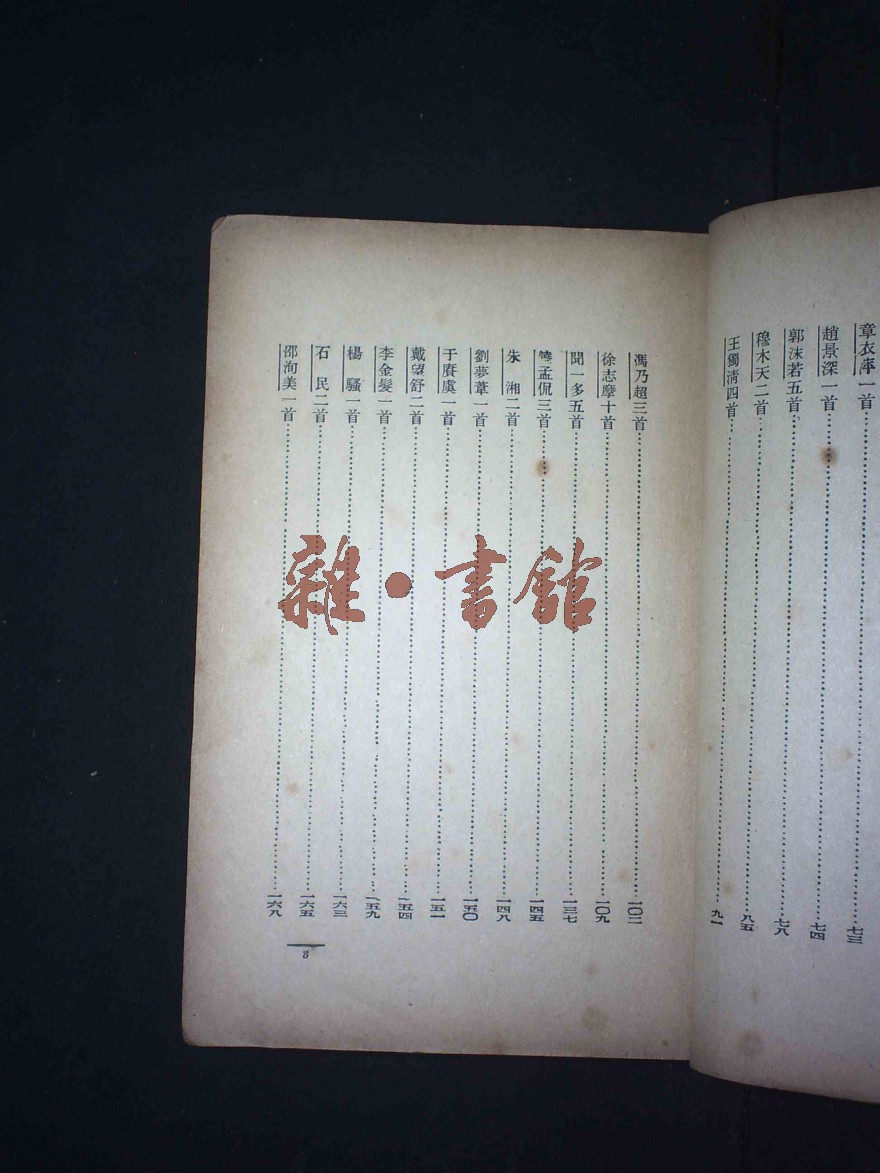 章衣萍一首……七三
趙景深一首……七四
郭沫若五首……七八
穆木天二首……八五
王獨清四首……九一
馮乃超三首……一〇二
徐志摩十首……一〇九
聞一多五首……一三七
孟侃三首……一四五
朱湘二首……一四八
劉夢葦一首……一五〇
于賡虞一首……一五一
戴望舒二首……一五四
李金髮一首……一五九
楊騷一首……一六三
石民二首……一六五
邵洵美一首……一六八
3
雜·書館